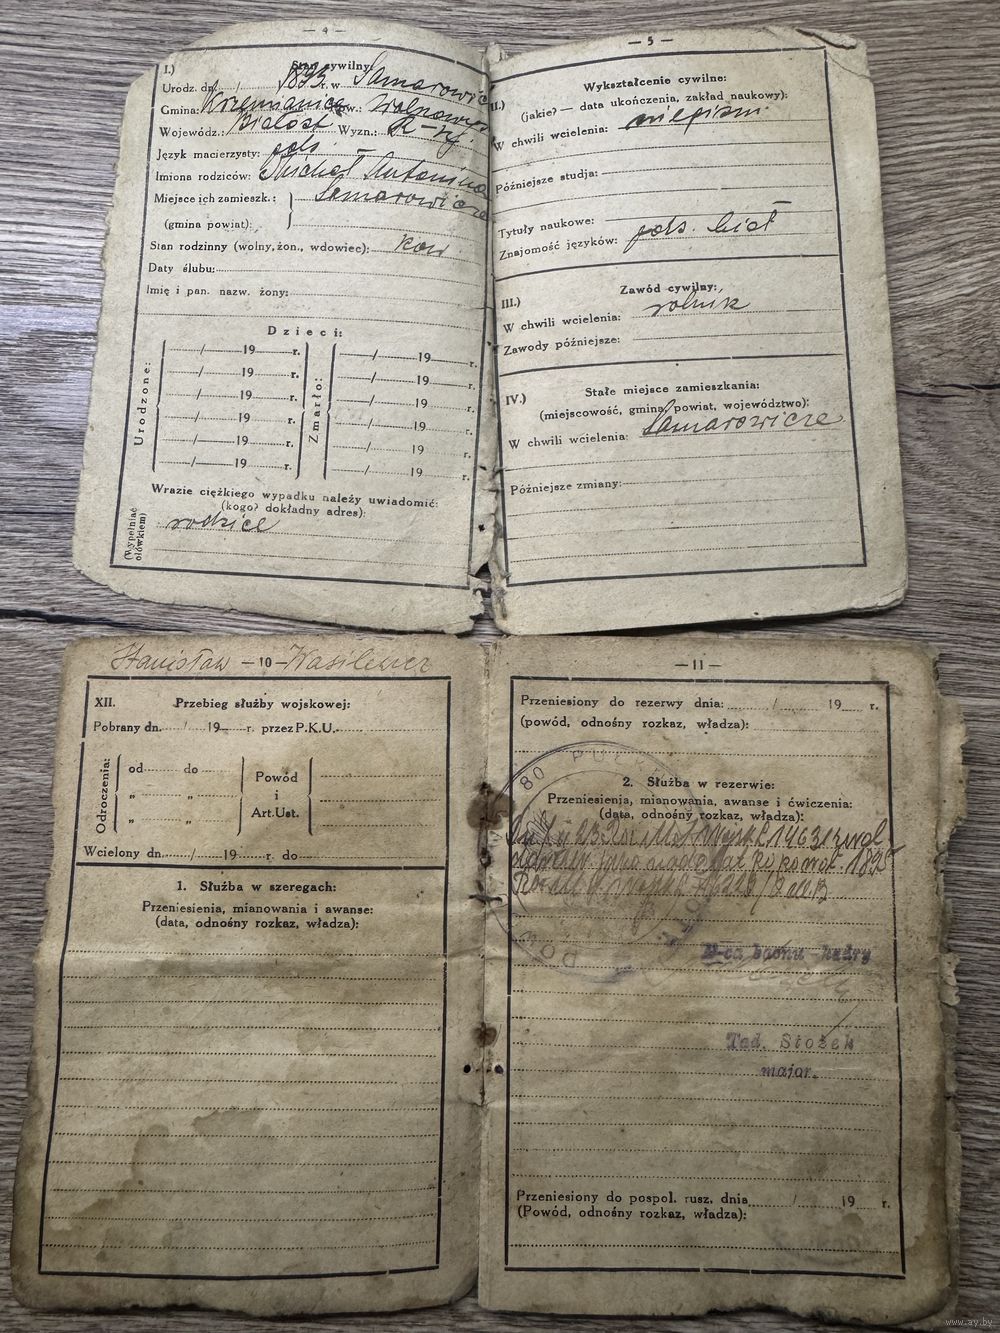 — 4 —
I.) Stan cywilny:
Urodz. dn. / 1895 r. w Samarowicz
Gmina: Krzemienica pow.: Wołkowysk
Wojewódz.: Białost Wyzn.: R-k
Język macierzysty: pols
Imiona rodziców: Michał Antonina
Miejsce ich zamieszk.: Samarowicze
(gmina powiat):
Stan rodzinny (wolny, żon., wdowiec): kaw
Daty ślubu:
Imię i pan. nazw. żony:
Dzieci:
Urodzone:
/ 19 r.
/ 19 r.
/ 19 r.
/ 19 r.
/ 19 r.
/ 19 r.
Zmarło:
/ 19 r.
/ 19 r.
/ 19 r.
/ 19 r.
/ 19 r.
/ 19 r.
Wrazie ciężkiego wypadku należy uwiadomić:
(kogo? dokładny adres):
rodzice
(Wypełniać ołówkiem)
— 5 —
II.) Wykształcenie cywilne:
(jakie? — data ukończenia, zakład naukowy):
W chwili wcielenia: niepism
Późniejsze studja:
Tytuły naukowe:
Znajomość języków: pols. biał
III.) Zawód cywilny:
W chwili wcielenia: rolnik
Zawody późniejsze:
IV.) Stałe miejsce zamieszkania:
(miejscowość, gmina, powiat, województwo):
W chwili wcielenia: Samarowicze
Późniejsze zmiany:
Stanisław — 10 — Wasilewicz
XII. Przebieg służby wojskowej:
Pobrany dn. / 19 r. przez P.K.U.
Odroczenia:
od do
„ „
„ „
Powód
i
Art. Ust.
Wcielony dn. / 19 r. do
1. Służba w szeregach:
Przeniesienia, mianowania i awanse:
(data, odnośny rozkaz, władza):
— 11 —
Przeniesiony do rezerwy dnia: / 19 r.
(powód, odnośny rozkaz, władza):
2. Służba w rezerwie:
Przeniesienia, mianowania, awanse i ćwiczenia:
(data, odnośny rozkaz, władza):
80
D-ca baonu kadry
Tad. Stożek
major.
Przeniesiony do pospol. rusz. dnia / 19 r.
(Powód, odnośny rozkaz, władza):
www.ay.by